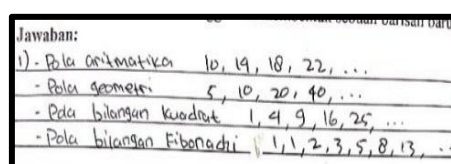 Jawaban:
1) - Pola aritmatika 10, 14, 18, 22, ...
- Pola geometri 5, 10, 20, 40, ...
- Pola bilangan kuadrat 1, 4, 9, 16, 25, ...
- Pola bilangan Fibonachi 1, 1, 2, 3, 5, 8, 13, ...